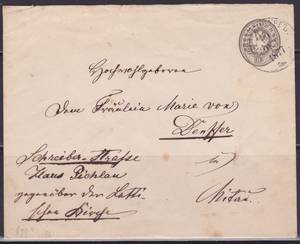 Hochwohlgeboren
Dem Fräulein Marie von
Denffer
Schreiber-Straße
in
Haus Pichlau
Mitau.
gegenüber der Letti-
schen Kirche
1877